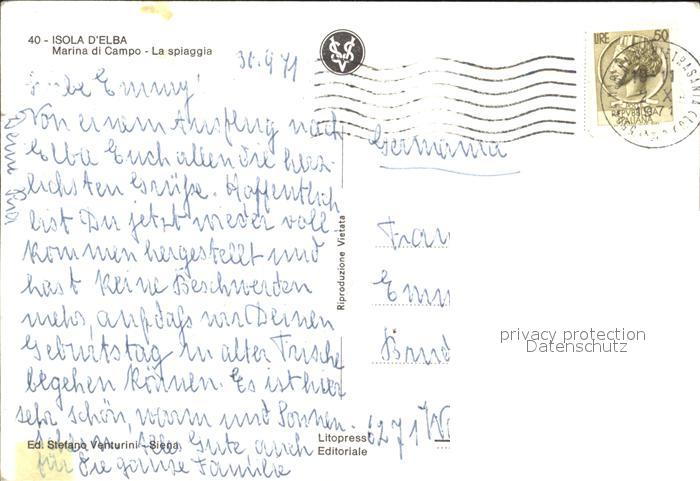 40 - ISOLA D'ELBA
Marina di Campo - La spiaggia
30.9.71
Liebe Emmy!
Von einem Ausflug nach
Elba Euch allen die herz-
lichsten Grüße. Hoffentlich
bist Du jetzt wieder voll-
kommen hergestellt und
hast keine Beschwerden
mehr, auf daß wir Deinen
Geburtstag in alter Frische
begehen können. Es ist hier
sehr schön, warm und Sonnen-
Alles Gute auch
für die ganze Familie
Deine
Germania
Frau
Emm
6271
Riproduzione Vietata
Ed. Stefano Venturini - Siena
Litopress
Editoriale
LIRE 50
REPVBBLICA
ITALIANA
privacy protection
Datenschutz